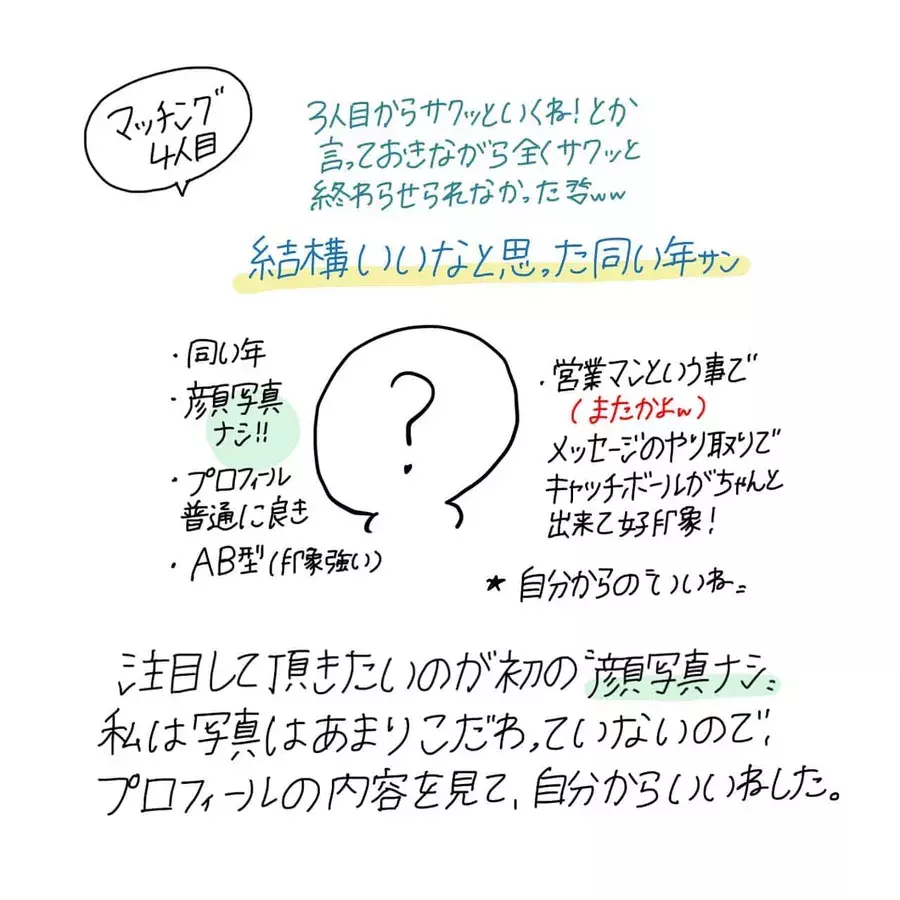 マッチング
4人目
3人目からサクッといくね!とか
言っておきながら全くサクッと
終わらせられなかった苔ww
結構いいなと思った同い年サン
・同い年
・顔写真
ナシ!!
・プロフィール
普通に良き
・AB型(印象強い)
?
・営業マンという事で
(またかよw)
メッセージのやり取りで
キャッチボールがちゃんと
出来て好印象!
★自分からの"いいね"
注目して頂きたいのが初の"顔写真ナシ"
私は写真はあまりこだわっていないので、
プロフィールの内容を見て、自分からいいねしました。